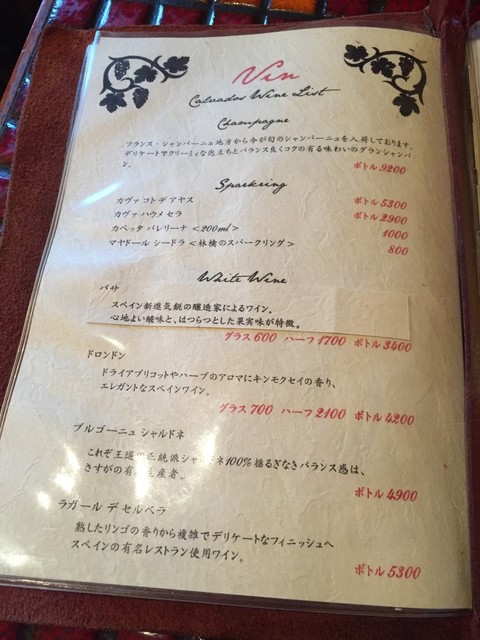 Vin
Calvados Wine List
Champagne
フランス・シャンパーニュ地方から今が旬のシャンパーニュを入荷しております。
デリケートでクリーミィな泡立ちとバランス良くコクの有る味わいのグランシャンパ
ン。
ボトル9200
Sparkring
カヴァ コト デ アヤス ボトル5300
カヴァ ハウメ セラ ボトル2900
カペッタ バレリーナ <200ml> 1000
マヤドール シードラ <林檎のスパークリング> 800
White Wine
スペイン新進気鋭の醸造家によるワイン。
心地よい酸味と、はつらつとした果実味が特徴。
グラス600 ハーフ1700 ボトル3400
ドロンドン
ドライアプリコットやハーブのアロマにキンモクセイの香り、
エレガントなスペインワイン。
グラス700 ハーフ2100 ボトル4200
ブルゴーニュ シャルドネ
これぞ王道の正統派シャルドネ100%揺るぎなきバランス感は、
さすがの有名生産者。
ボトル4900
ラガール デ セルベラ
熟したリンゴの香りから複雑でデリケートなフィニッシュへ
スペインの有名レストラン使用ワイン。
ボトル5300